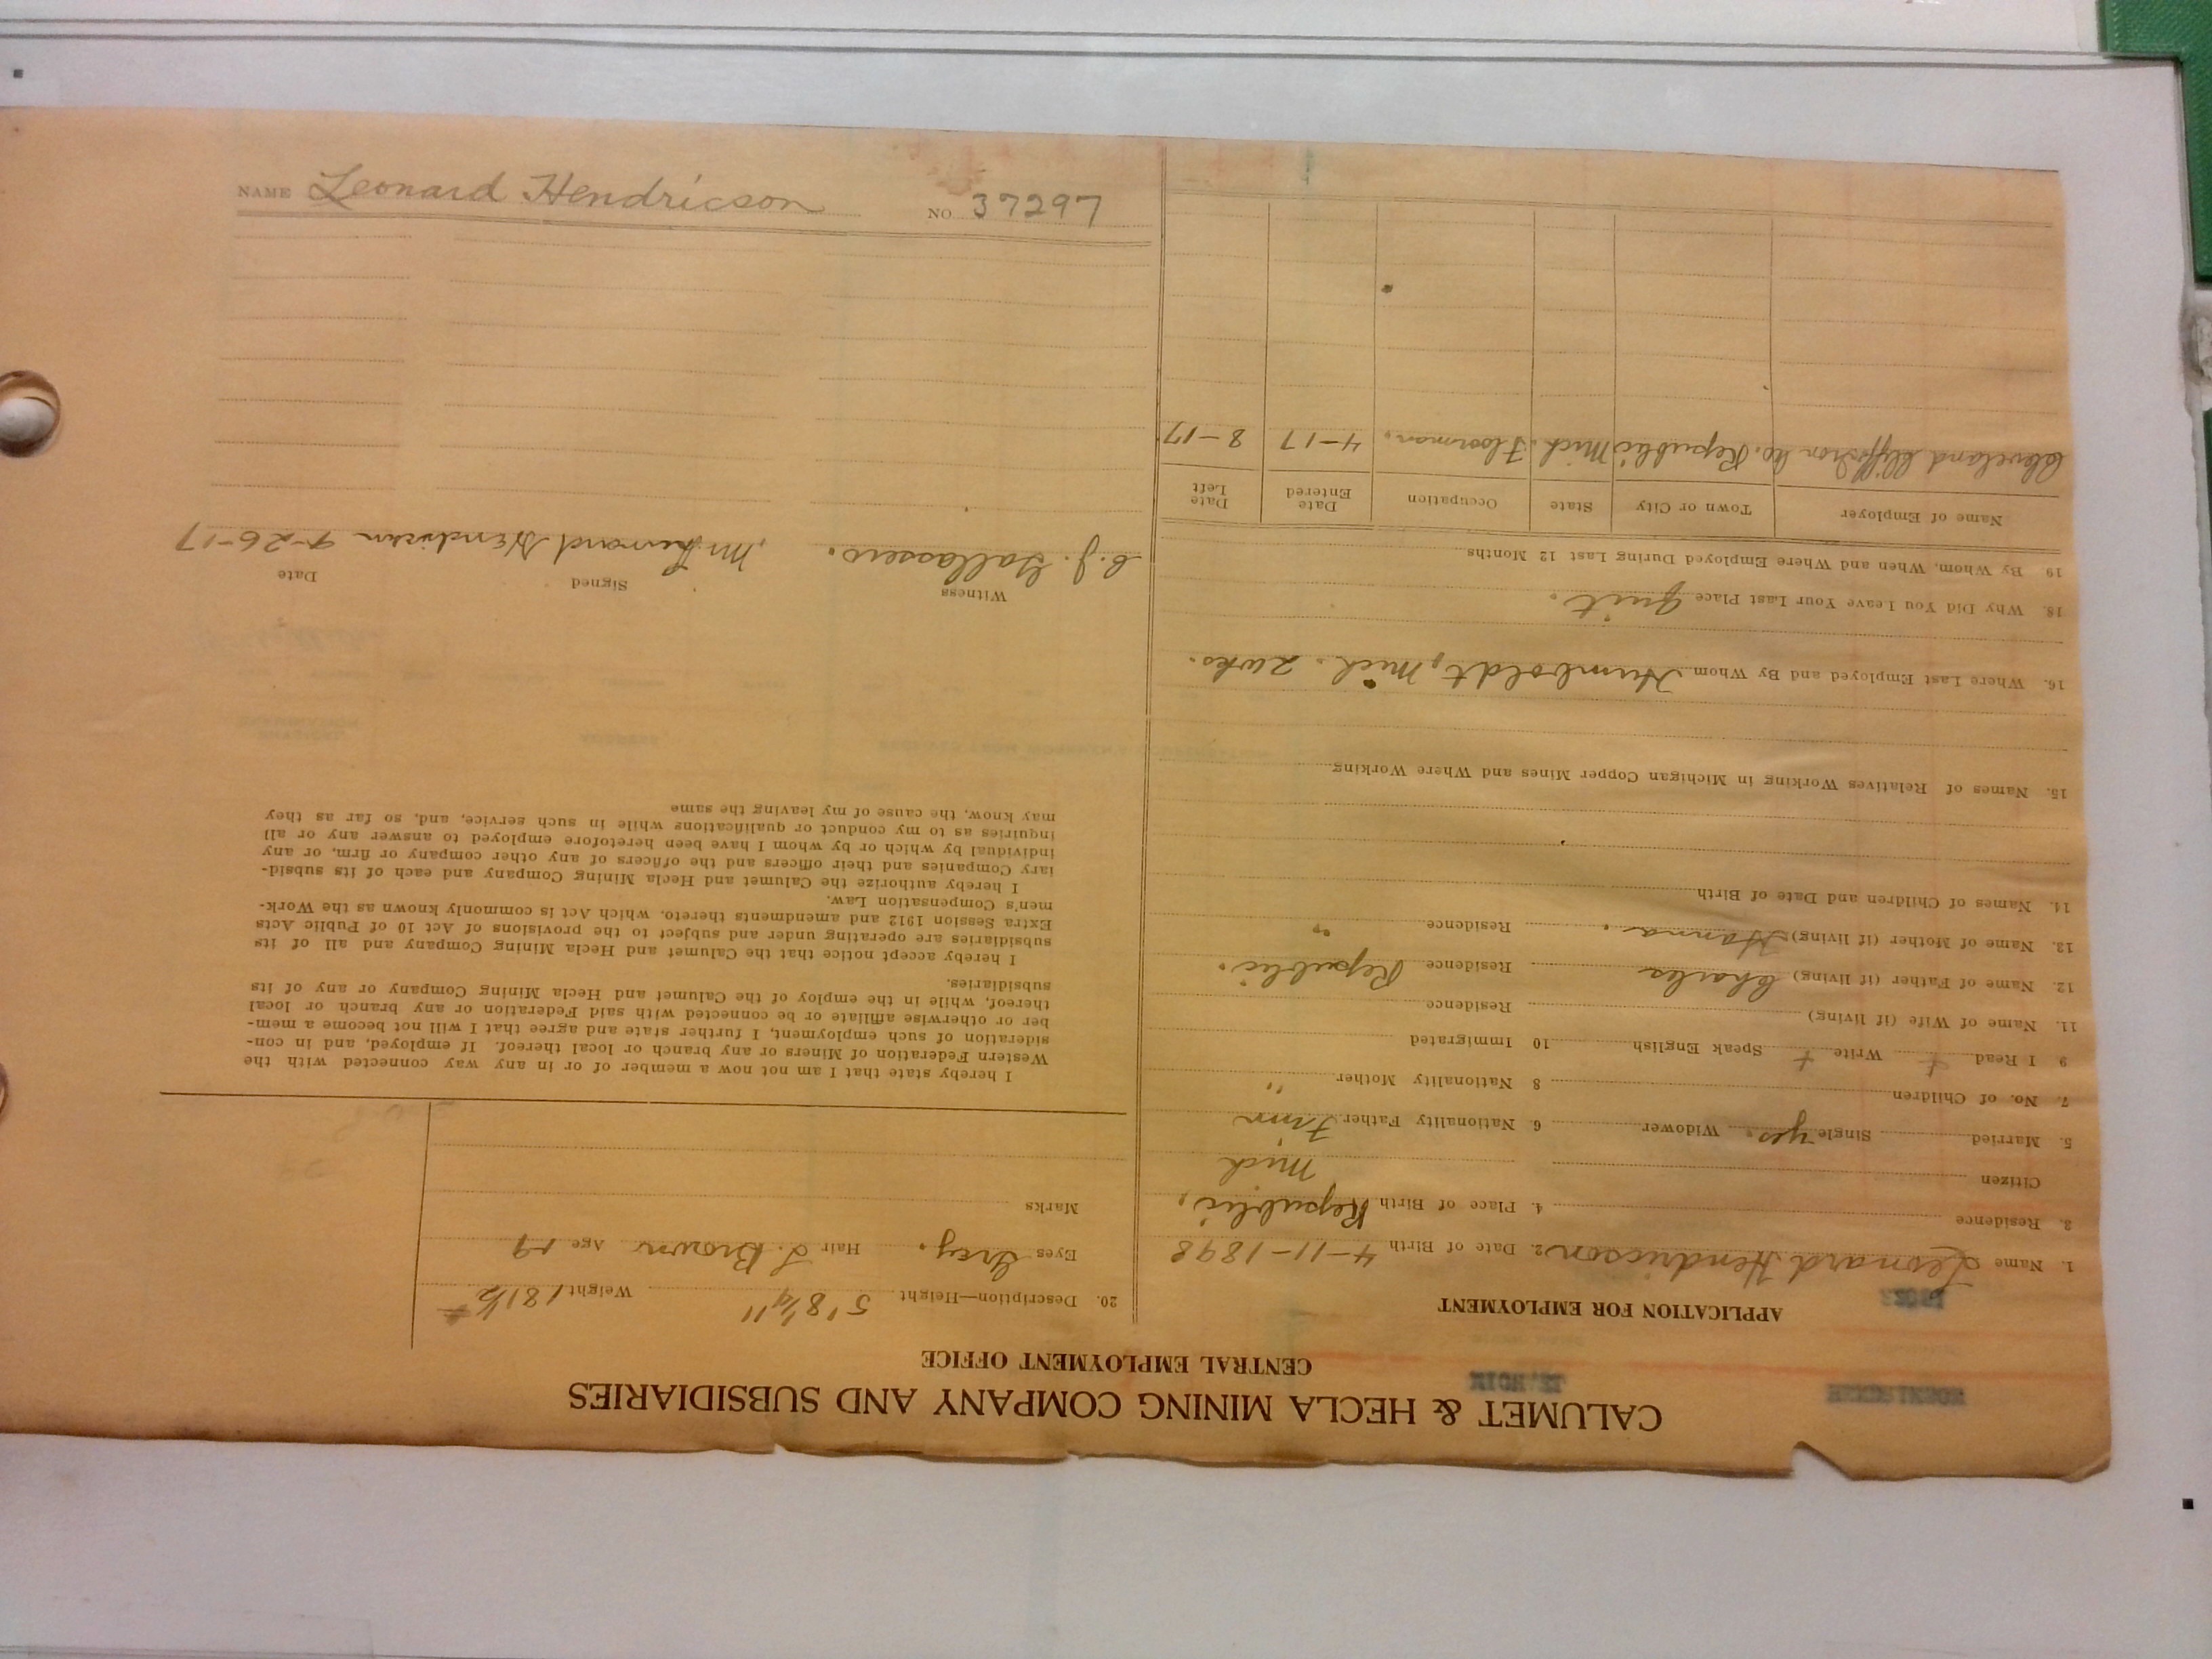 CALUMET & HECLA MINING COMPANY AND SUBSIDIARIES
CENTRAL EMPLOYMENT OFFICE
APPLICATION FOR EMPLOYMENT
1. Name Leonard Hendricson 2. Date of Birth 4-11-1898
3. Residence 4. Place of Birth Republic,
Citizen Mich
5. Married Single yes. Widower 6. Nationality Father Finn
7. No. of Children 8 Nationality Mother "
9 I Read + Write + Speak English 10 Immigrated
11. Name of Wife (if living) Residence
12. Name of Father (if living) Charles Residence Republic.
13. Name of Mother (if living) Hanna. Residence "
14. Names of Children and Date of Birth
15. Names of Relatives Working in Michigan Copper Mines and Where Working
16. Where Last Employed and By Whom Humboldt, Mich. 2 wks.
18. Why Did You Leave Your Last Place quit.
19 By Whom, When and Where Employed During Last 12 Months
Name of Employer Town or City State Occupation Date Entered Date Left
Cleveland Cliffs Iron Co. Republic Mich. Floorman. 4-17 8-17
20. Description—Height 5' 8 1/4" Weight 181 1/2
Eyes Grey. Hair L. Brown Age 19
Marks
I hereby state that I am not now a member of or in any way connected with the
Western Federation of Miners or any branch or local thereof. If employed, and in con-
sideration of such employment, I further state and agree that I will not become a mem-
ber or otherwise affiliate or be connected with said Federation or any branch or local
thereof, while in the employ of the Calumet and Hecla Mining Company or any of its
subsidiaries.
I hereby accept notice that the Calumet and Hecla Mining Company and all of its
subsidiaries are operating under and subject to the provisions of Act 10 of Public Acts
Extra Session 1912 and amendments thereto. which Act is commonly known as the Work-
men's Compensation Law.
I hereby authorize the Calumet and Hecla Mining Company and each of its subsid-
iary Companies and their officers and the officers of any other company or firm, or any
individual by which or by whom I have been heretofore employed to answer any or all
inquiries as to my conduct or qualifications while in such service, and, so far as they
may know, the cause of my leaving the same
Witness Signed Date
C. J. Mr. Lennard Hendricsen 9-26-17
NAME Leonard Hendricson NO 37297